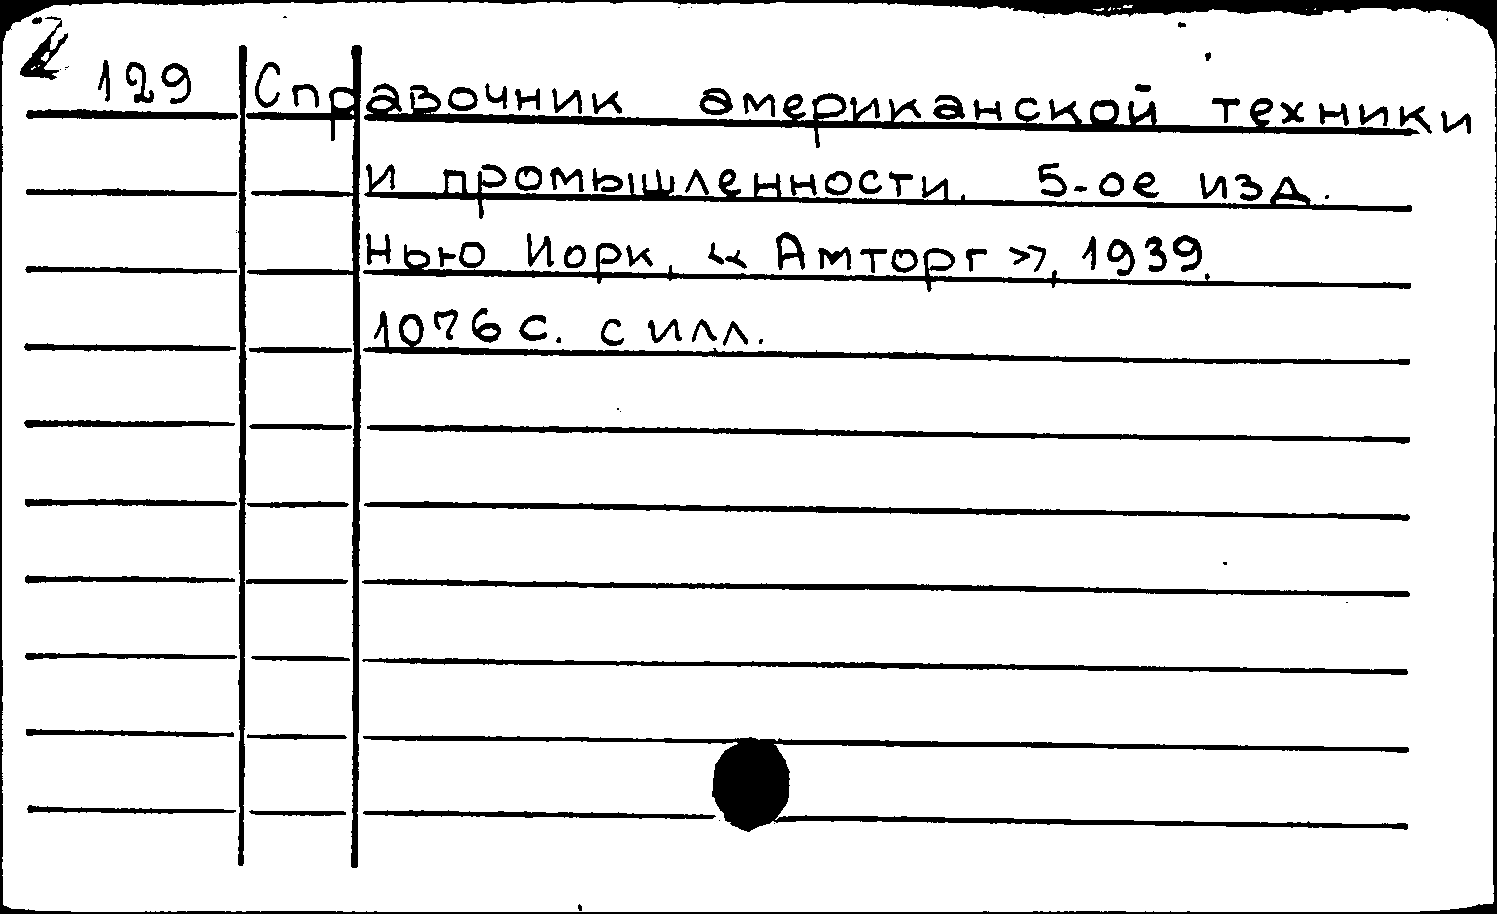 129 Справочник американской техники
и промышленности. 5-ое изд.
Нью Иорк, « Амторг », 1939.
1076 с. с илл.